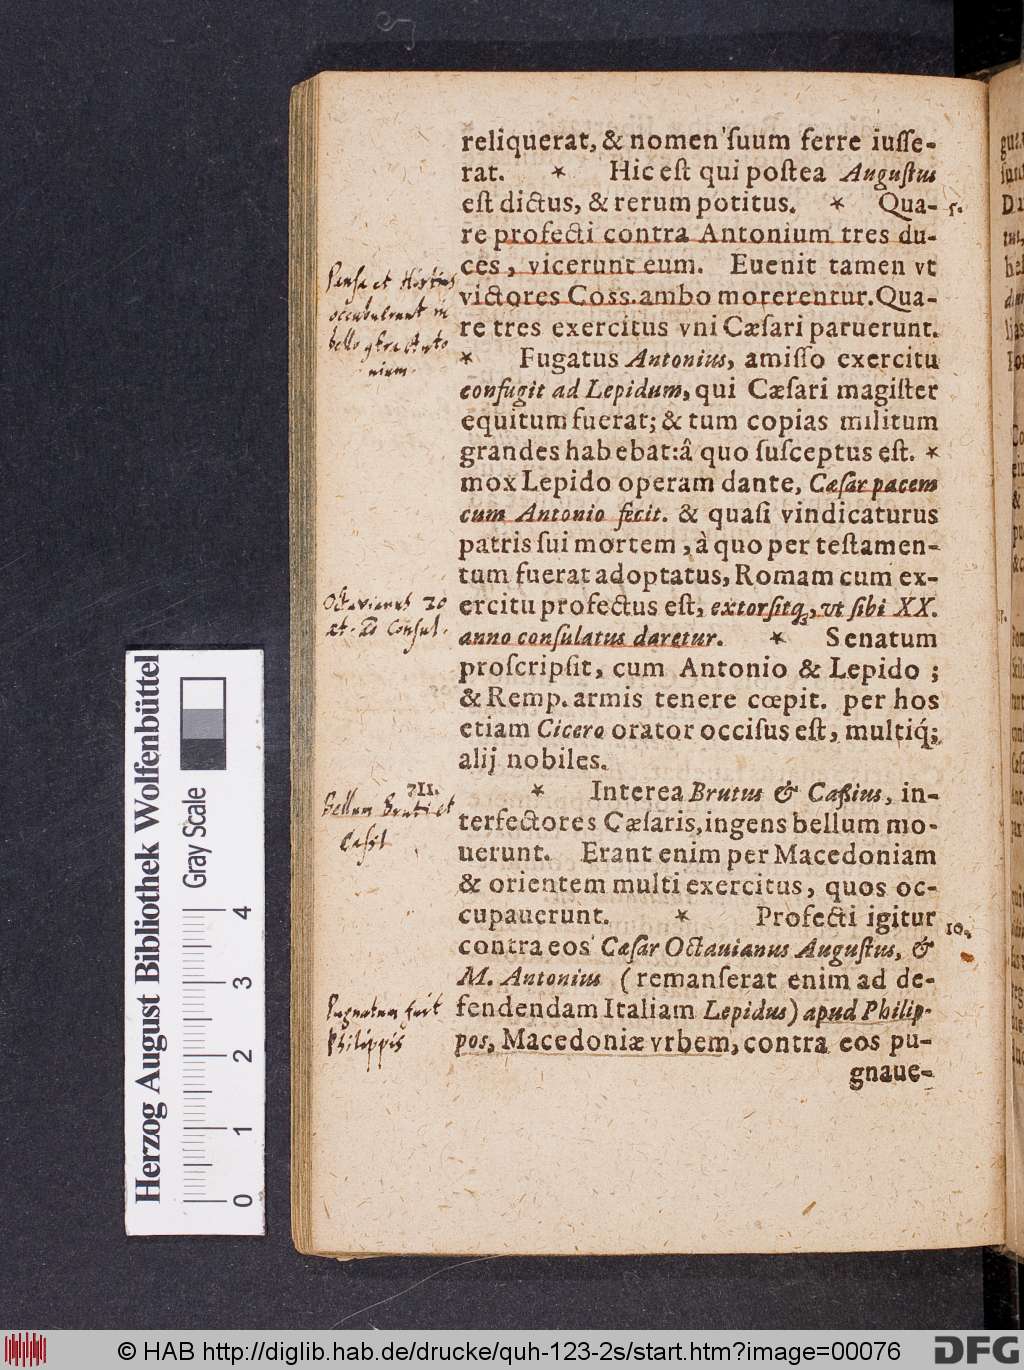 reliquerat, & nomen ſuum ferre iuſſe-
rat. * Hic eſt qui poſtea Auguſtus
eſt dictus, & rerum potitus. * Qua-
5.
re profecti contra Antonium tres du-
ces, vicerunt eum. Euenit tamen vt
victores Coss. ambo morerentur. Qua-
re tres exercitus vni Cæſari paruerunt.
Pansa et Hirtius
occubuerunt in
bello contra Anto
nium.
* Fugatus Antonius, amiſſo exercitu
confugit ad Lepidum, qui Cæſari magiſter
equitum fuerat; & tum copias militum
grandes habebat: â quo ſuſceptus eſt. *
mox Lepido operam dante, Cæſar pacem
cum Antonio fecit. & quaſi vindicaturus
patris ſui mortem, à quo per teſtamen-
tum fuerat adoptatus, Romam cum ex-
ercitu profectus eſt, extorſitq́;, vt ſibi XX.
anno conſulatus daretur. * Senatum
Octavianus 20
Consul.
proſcripſit, cum Antonio & Lepido ;
& Remp. armis tenere cœpit. per hos
etiam Cicero orator occiſus eſt, multiq́;
alij nobiles.
711.
Bellum Bruti et
Cassi
* Interea Brutus & Caßius, in-
terfectores Cæſaris, ingens bellum mo-
uerunt. Erant enim per Macedoniam
& orientem multi exercitus, quos oc-
cupauerunt. * Profecti igitur
10.
contra eos Cæſar Octauianus Auguſtus, &
M. Antonius (remanſerat enim ad de-
fendendam Italiam Lepidus) apud Philip-
pos, Macedoniæ vrbem, contra eos pu-
Pugnatum fuit
Philippis
gnaue-
Herzog August Bibliothek Wolfenbüttel
Gray Scale
0 1 2 3 4
© HAB http://diglib.hab.de/drucke/quh-123-2s/start.htm?image=00076
DFG